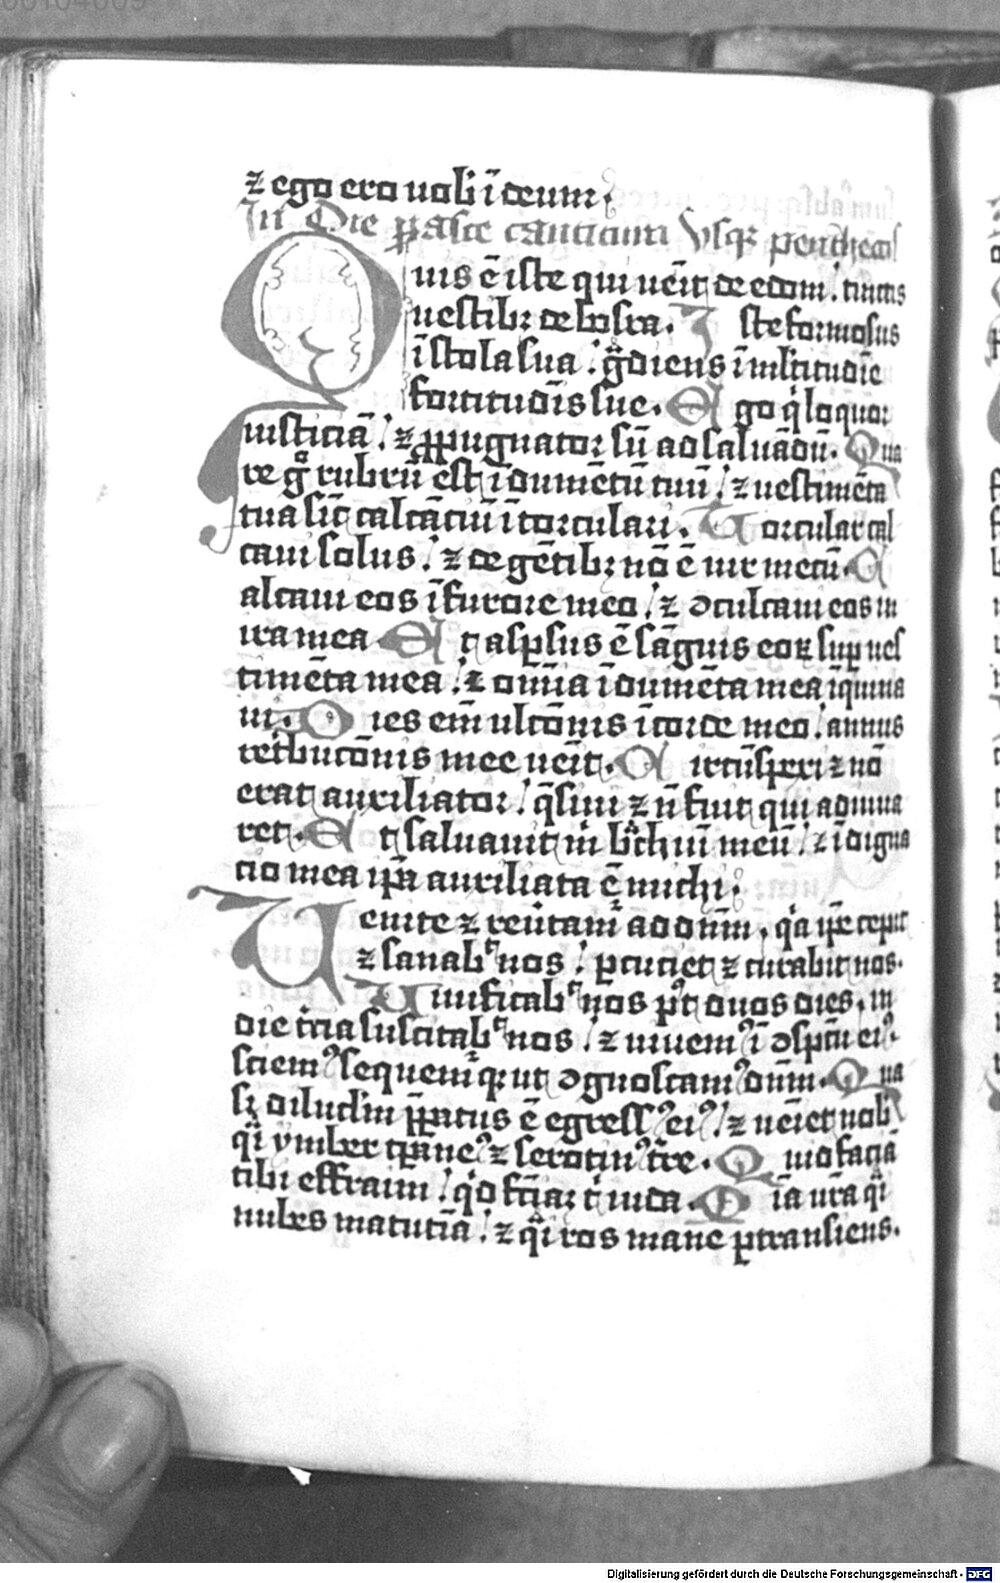 ⁊ ego ero uob̄ ī deum.
In Die pasce canticum vsq; penthecos
Quis ē iste qui uēit de edom / tinctis
uestib; de bosra. Iste formosus
ī stola sua / g̃diens ī ml̃titudīe
fortitudīs sue. Ego q̇ loquor
iusticiā / ⁊ ꝓpugnator sū ad saluādū. Qua
re gͦ rubrū est īdumētū tuū / ⁊ uestimēta
tua sic̄ calcāciū ī torculari. Torcular cal
caui solus / ⁊ de gētib; nō ē uir mecū. C
alcaui eos ī furore meo / ⁊ ↄculcaui eos in
ira mea. Et asꝑsus ē sāguis eoꝝ suꝑ ues
timēta mea / ⁊ om̄ia īdumēta mea īquina
ui. Dies em̄ ultōnis ī corde meo / annus
retbucōnis mee uēit. Circūspexi ⁊ nō
erat auxiliator / q̄siui ⁊ n̄ fuit qui adiuua
ret. Et saluauit m̊ bͣchiū meū / ⁊ īdigna
cio mea ip̄a auxiliata ē michi.
Uenite ⁊ reūtamꝰ ad dn̄m, qͥa ip̄e cepit
⁊ sanabᷤ nos / ꝑcuciet ⁊ curabit nos.
Uiuificabᷤ nos pꝰt duos dies, in
die tͨia suscitabᷤ nos / ⁊ uiuemꝰ ī ↄsp̄tu eiꝰ.
sciemꝰ sequemͥq; ut ↄgnoscamꝰ dn̄m. Qua
sͥ diluclm̄ p̄patus ē egressꝰ eiꝰ / ⁊ uēiet nob̄
qͥ ymber tp̄aneꝰ ⁊ serotinꝰ tr̄e. Quid faciā
tibi effraim / qͥd fc̄iaꝫ t̊ iuda. Mīa ur̄a qͥ
nubes matutīa / ⁊ qͥ ros mane ꝑtransiens.
Digitalisierung gefördert durch die Deutsche Forschungsgemeinschaft - DFG